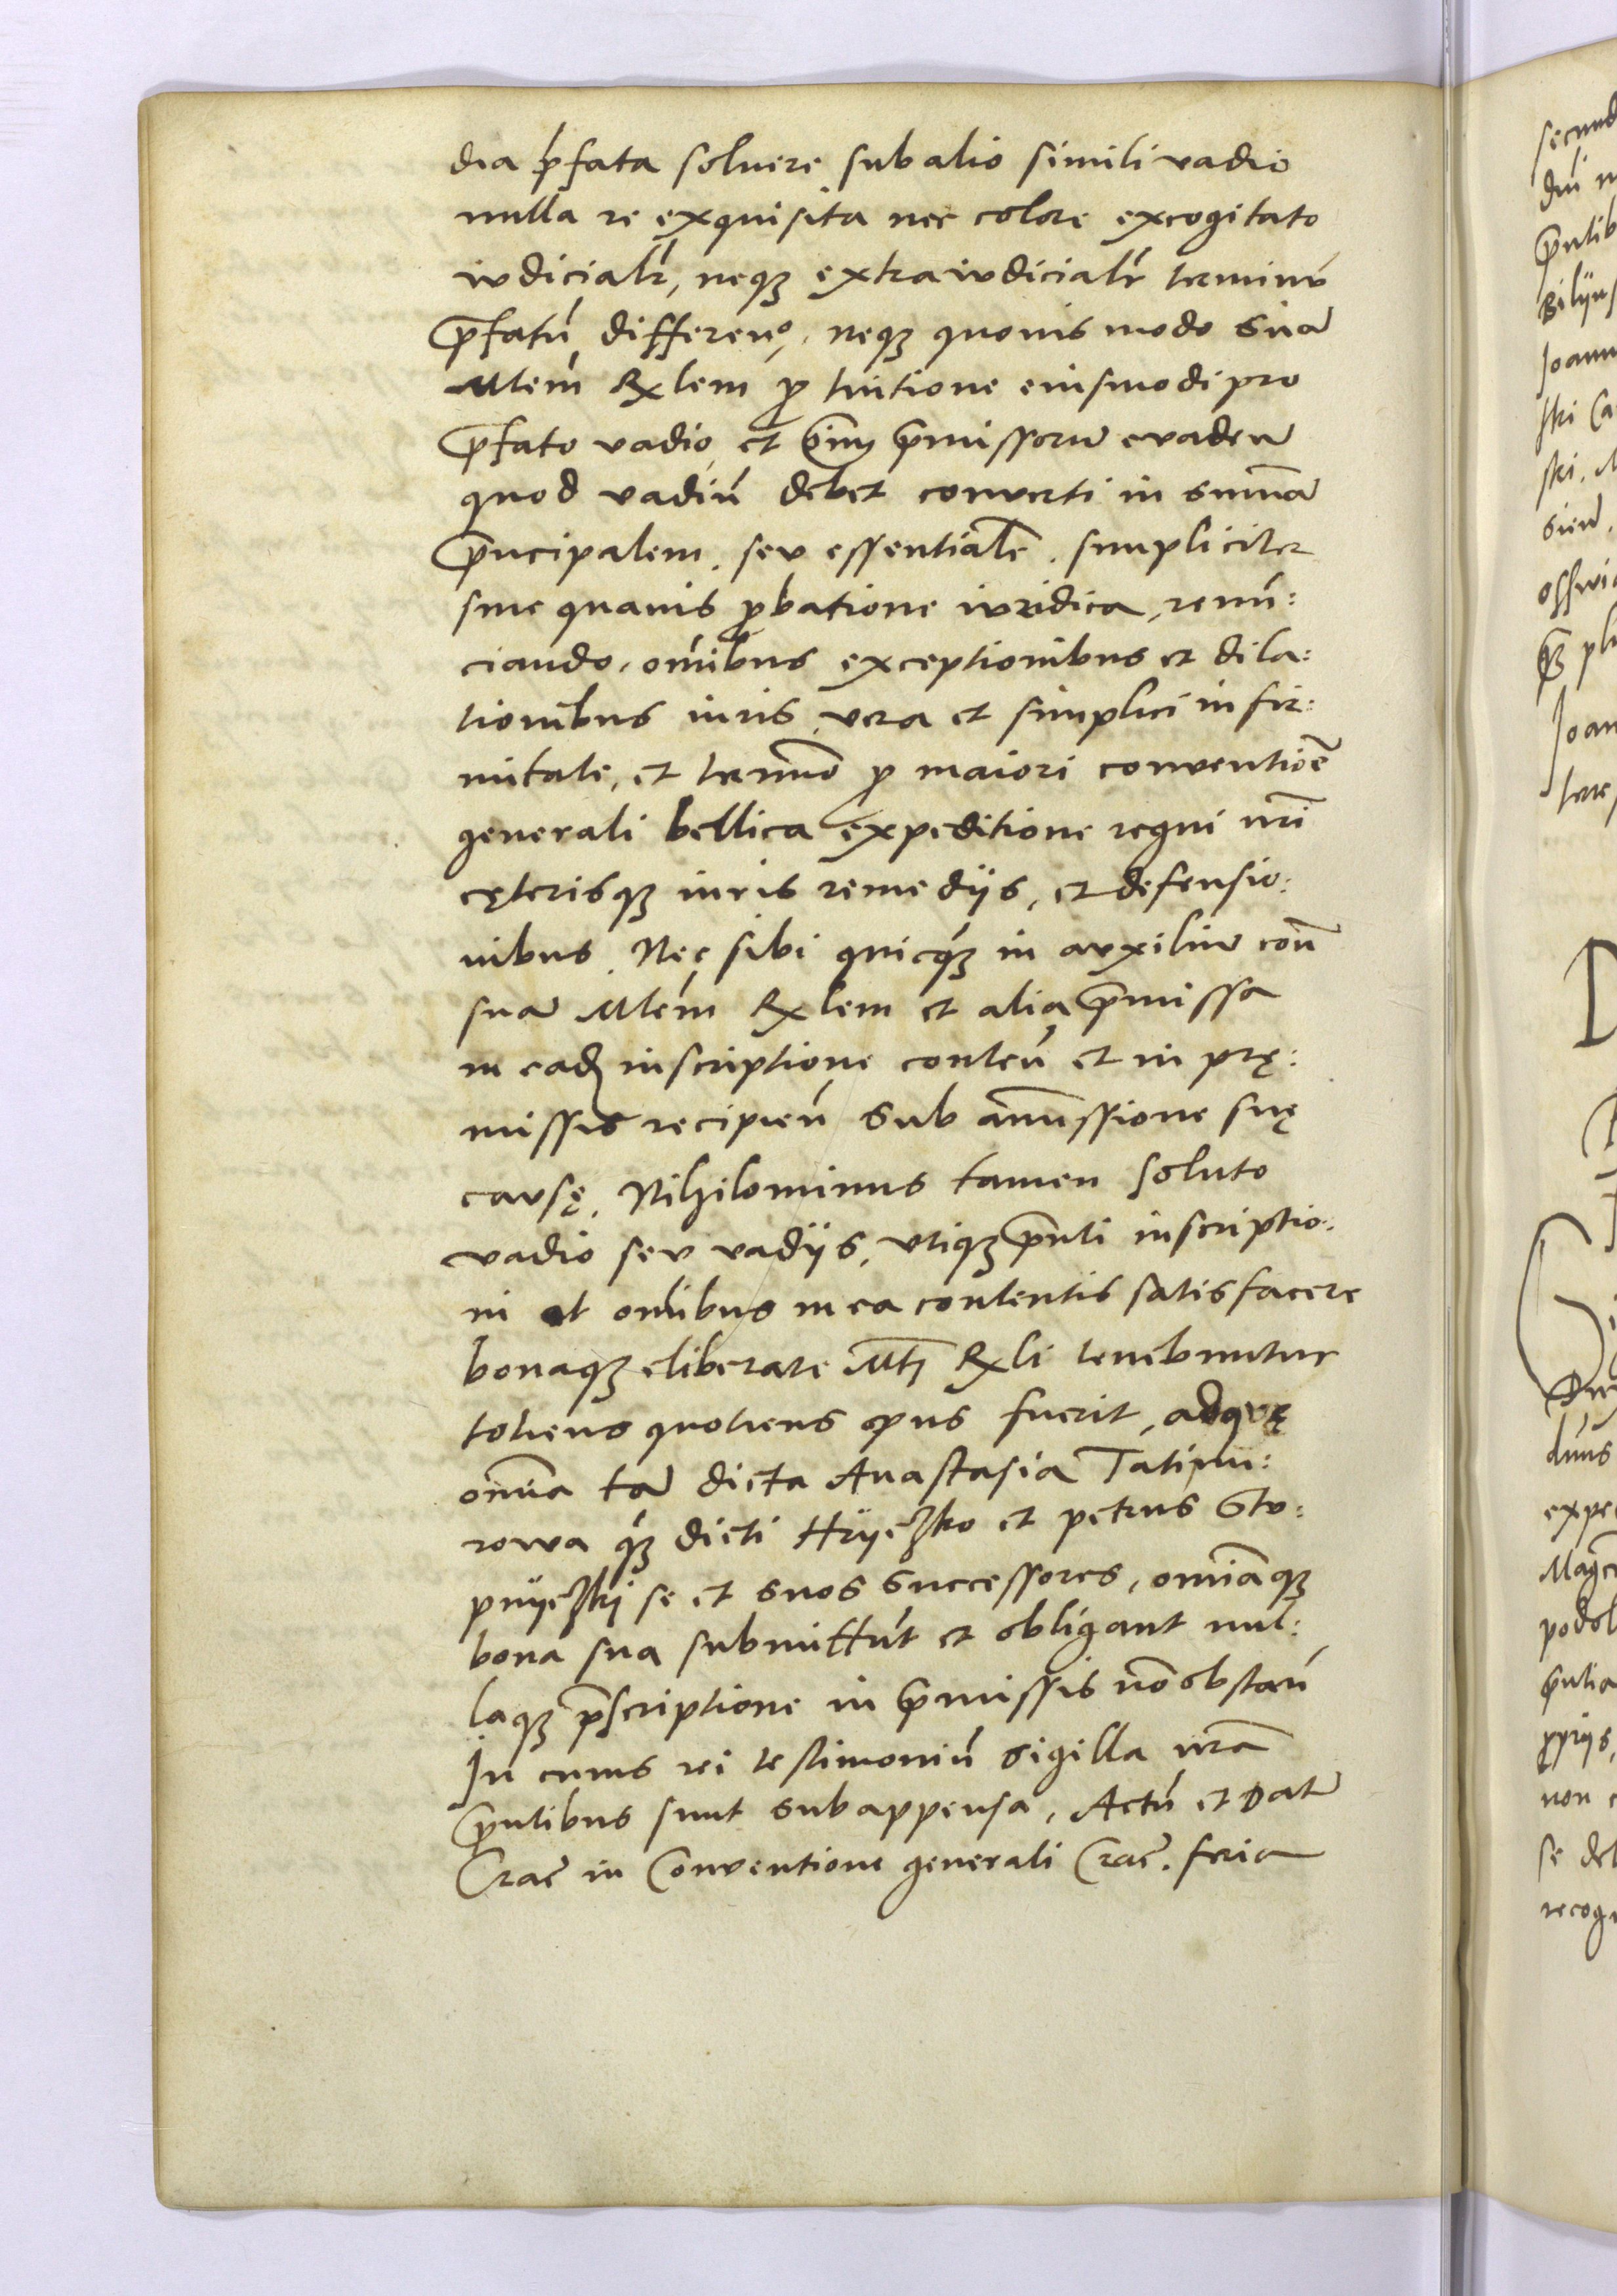 dia p̄fata soluere sub alio simili vadio
nulla re exquisita nec colore excogitato
iudicialr̄, neqꝫ extraiudicialr̄ terminū
p̄fatū differen̄o, neqꝫ quouis modo suā
Mtem̄ Rx lem ꝑ tuitione eiusmodi pro
p̄fato vadio et oīm p̄missorū evaden̄
quod vadiū debet converti in sum̄ā
p̄ncipalem, seu essentialē, simpliciter
sine quavis ꝓbatione iuridica, renū:
ciando, om̄ibus exceptionibus et dila:
tionibus iuris, vera et simplici infir:
mitate, et termīo ꝑ maiori conventiōe
generali bellica expeditione regni nr̄i
cęterisqꝫ iuris remedijs, et defensio:
nibus. Nec sibi quicq̄ꝫ in auxiliū con̄
suā Mtem̄ Rx lem et alia p̄missa
in eadꝫ inscriptione conten̄ et in prę:
missis recipien̄ sub amissione suę
causę. Nihilominus tamen soluto
vadio seu vadijs, utiqꝫ p̄nti inscriptio:
ni et om̄ibus in ea contentis satisfacere
bonaqꝫ eliberare Mtꝫ Rx li tenebuntur
totiens quotiens opus fuerit, ad quę
om̄ia tā dicta Anastasia Tatimi:
rowa q̄ꝫ dicti Hrÿczko et petrus Sto:
pnÿczkÿ se et suos successores, om̄iaqꝫ
bona sua submittūt et obligant nul:
laqꝫ p̄scriptione in p̄missis nō obstan̄
In cuius rei testimoniū sigilla nr̄a
p̄ntibus sunt subappensa, Actū et Datū
Crac̄ in Conventione generali Crac̄. feria